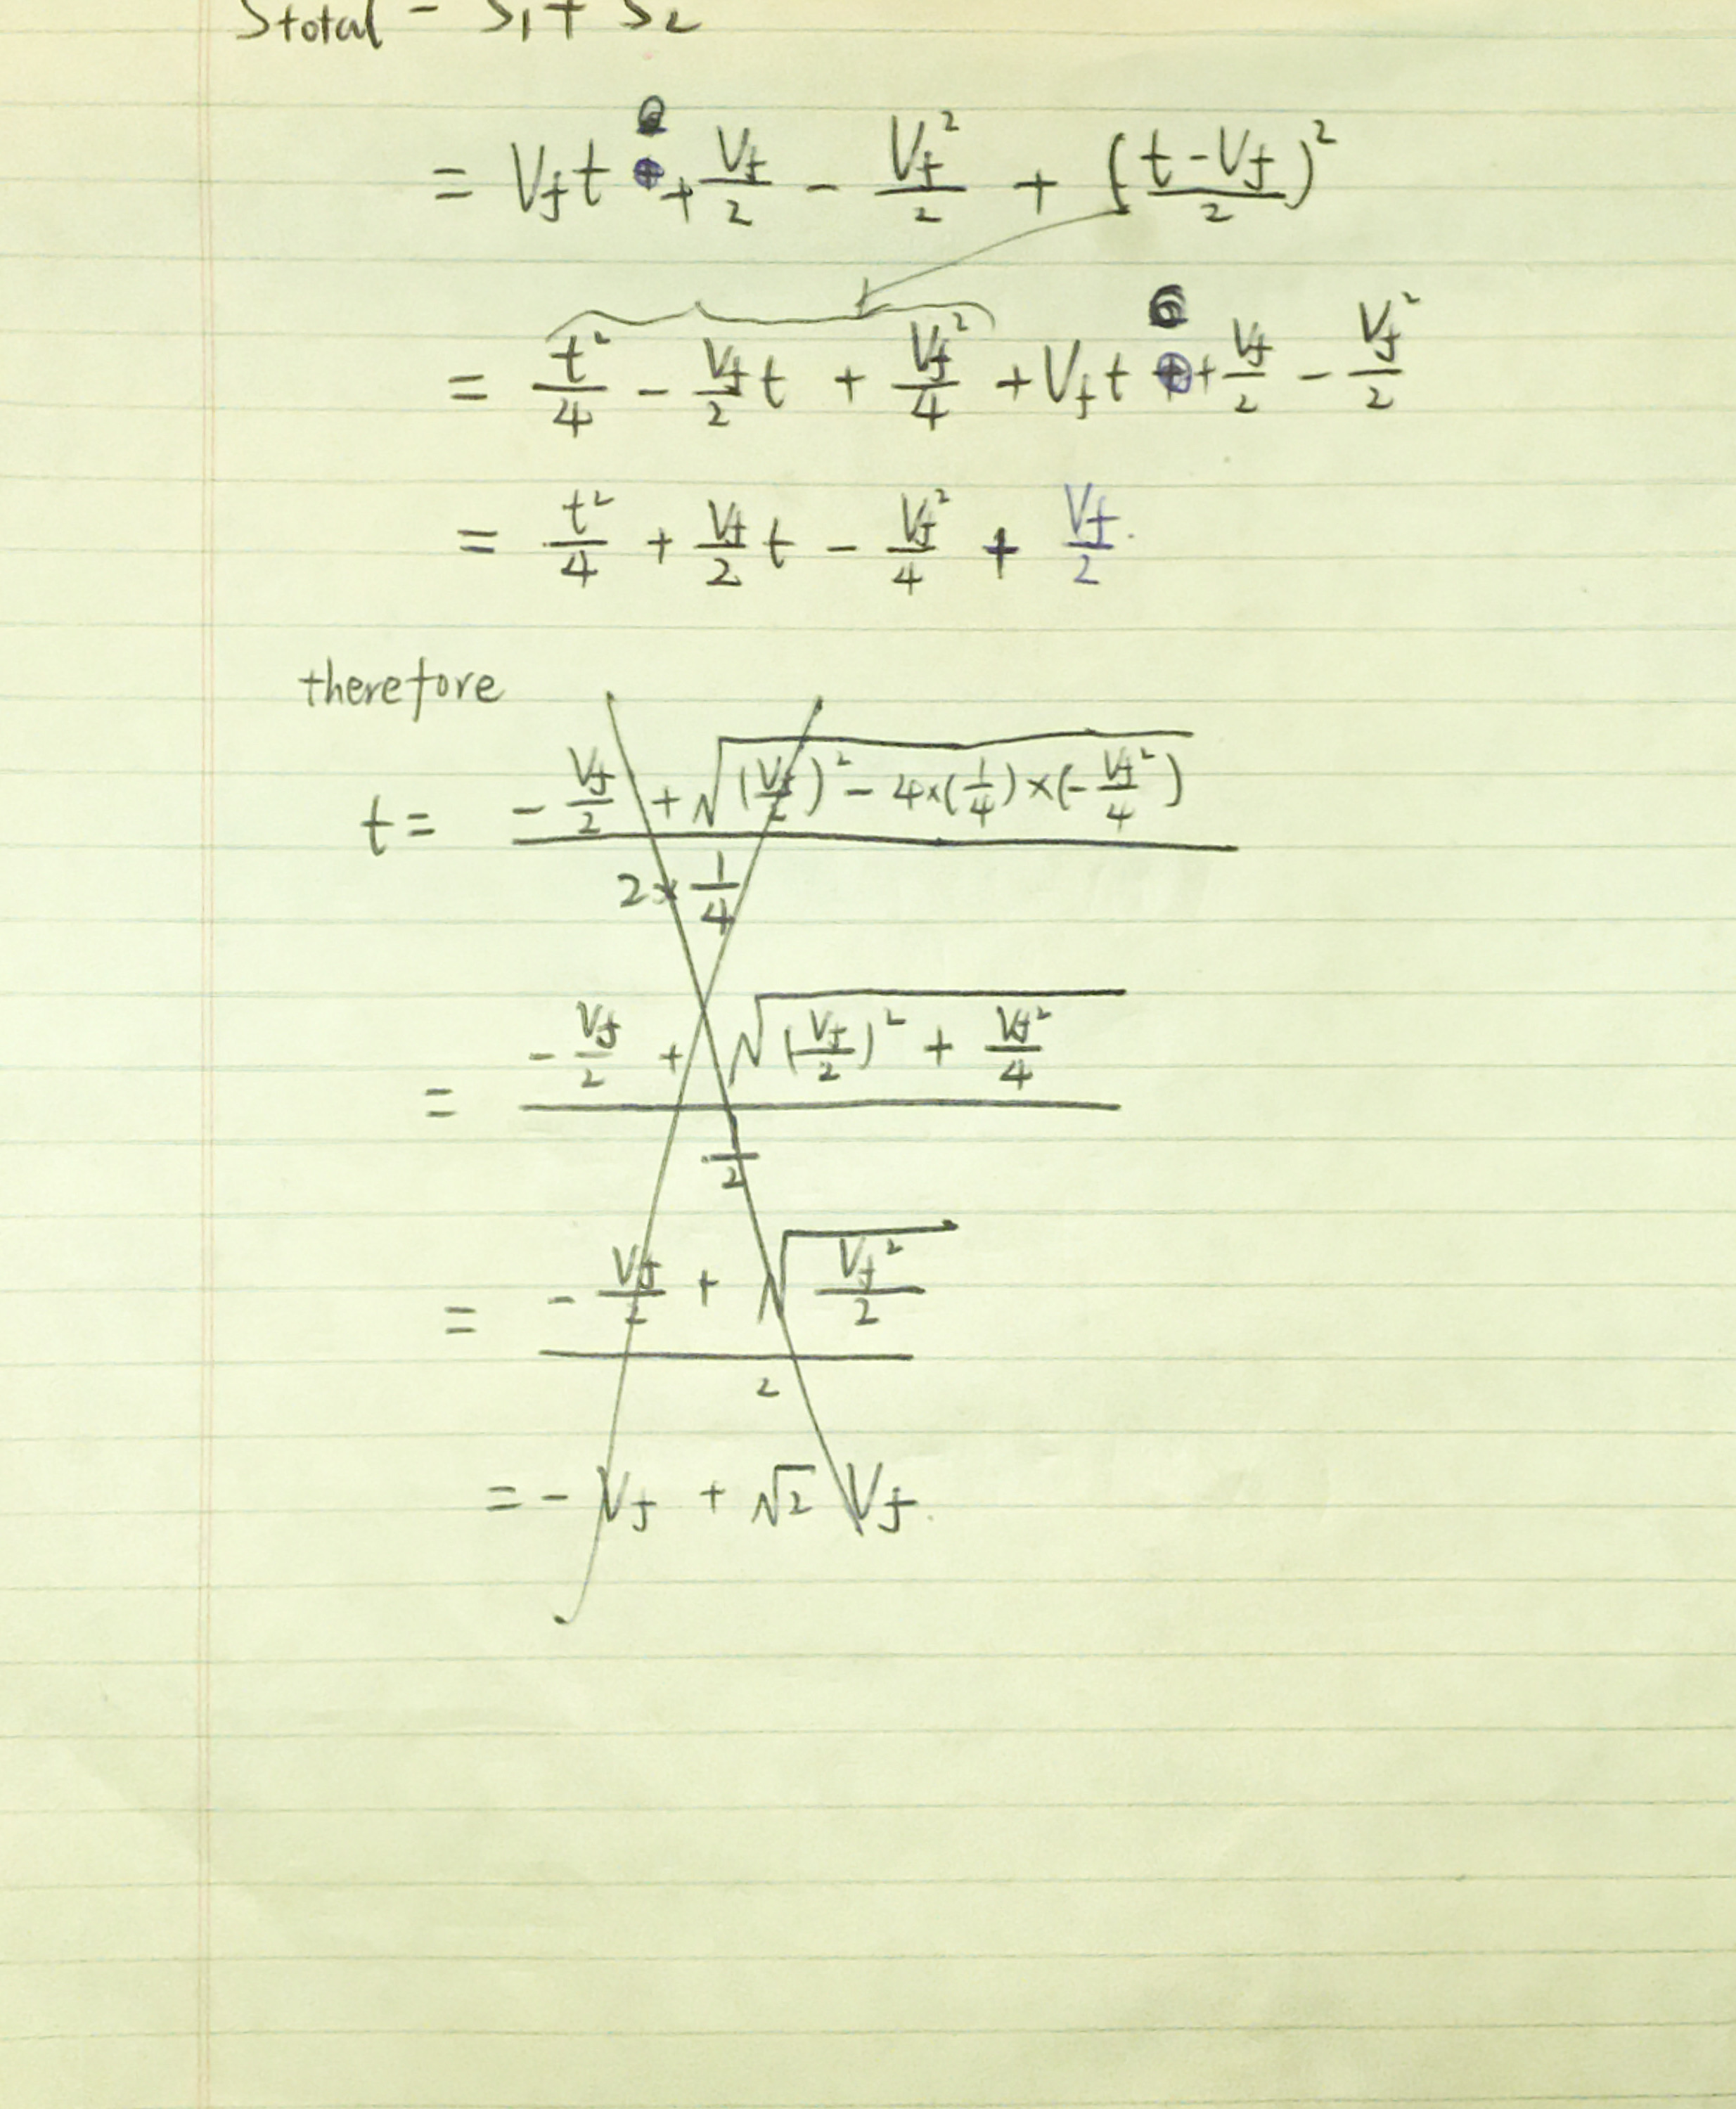 Stotal = S₁ + S₂
= Vf t + Vf/2 - Vf²/2 + (t-Vf/2)²
= t²/4 - Vf/2 t + Vf²/4 + Vf t + Vf/2 - Vf²/2
= t²/4 + Vf/2 t - Vf²/4 + Vf/2
therefore
t = (-Vf/2 + √((Vf/2)² - 4×(1/4)×(-Vf²/4))) / (2×1/4)
= (-Vf/2 + √((Vf/2)² + Vf²/4)) / (1/2)
= (-Vf/2 + √(Vf²/2)) / 2
= - Vf + √2 Vf.